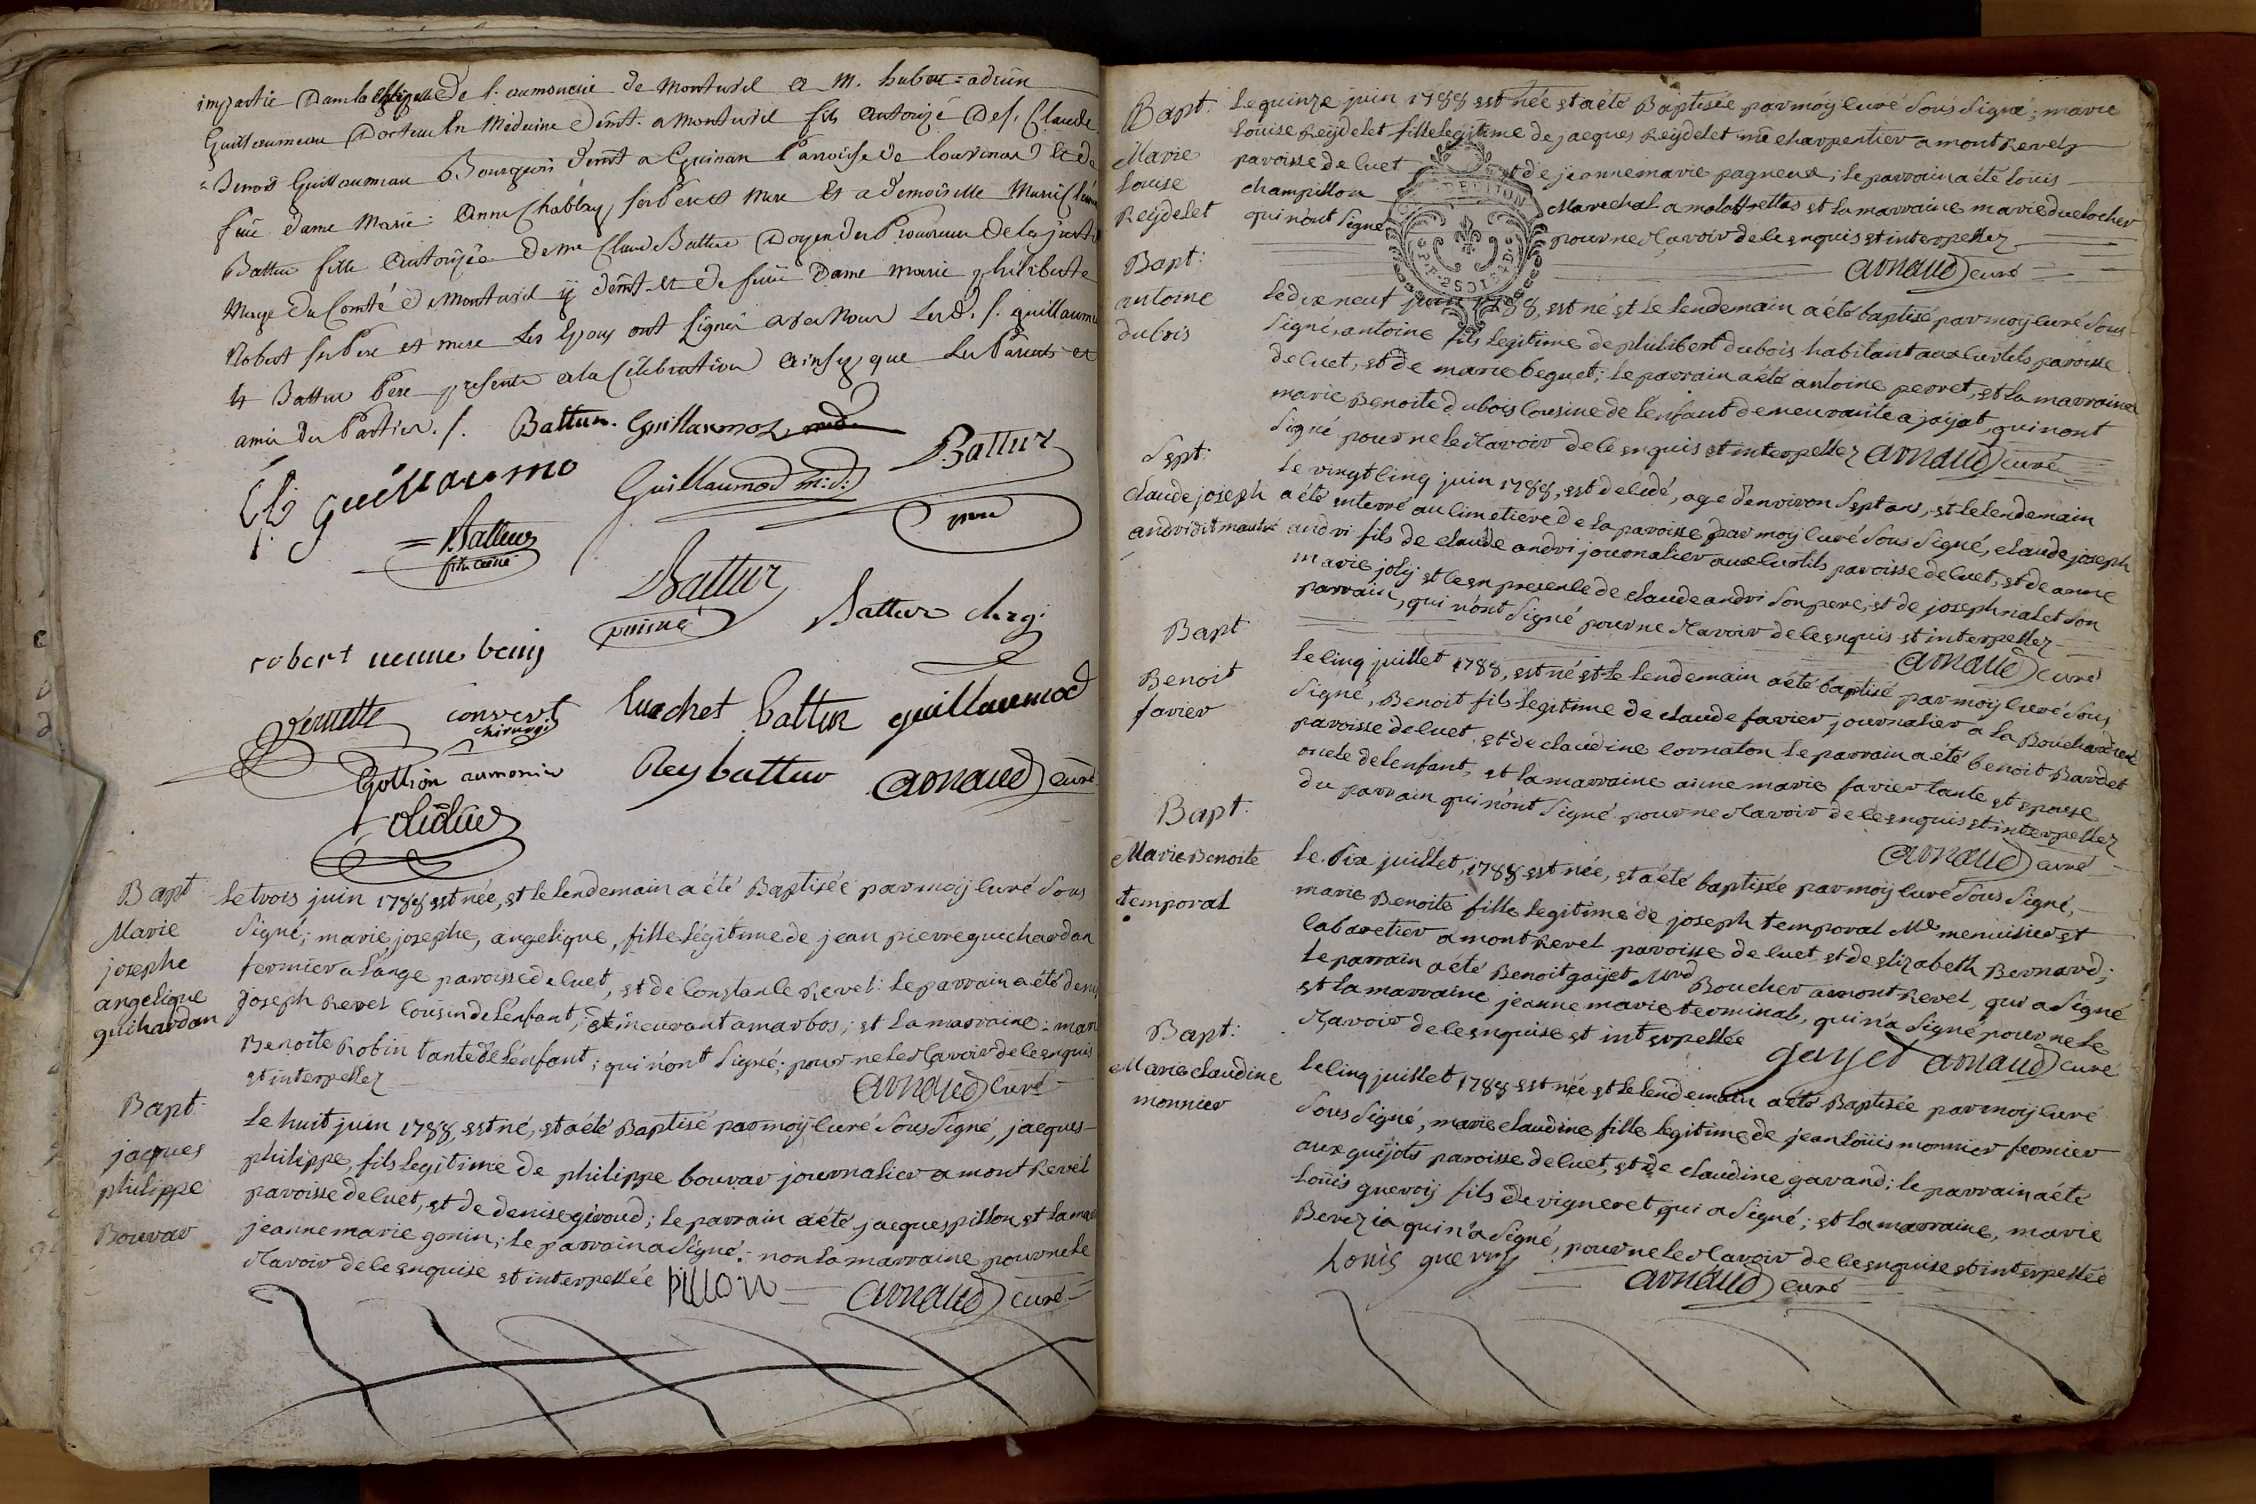 impartie dans la Chapelle de l'aumonerie de Montuvel a M. hubert = adrien
Guillaumeau Docteur En Médecine demt. a Montuvel fils autorizé De s. Claude
= Benoit Guillaumau Bourgeois demt a Guinan Parroisse de Courmas Et de
feüe dame Marie: Anne Chablay, ses Pere et Mere Et a demoiselle Marie
Battur fille Autorizée de me Claud Battur Doyen des Procureurs De la justi
Mage du Comté de Montuvel ÿ demt. et De feüe Dame marie philiberte
Robert ses Pere et mere Les Epoux ont Signés avec Nous Les d. s. guillaumo
et Battur Pere presents a la Célébration ainsy que Les Parents et
amis des Parties. /. Battur. Guillaumoz
guillaumo Guillaumod m:d: Battur
pere
Battur
fils ainé
Battur
puisné
Battur chirg:
robert
Vernette convert
chirurgi
luschet battur guillaumod
Gottion aumonier Rey battur arnaud curé
Bapt:
Marie
josephe
angelique
guichardan
Le trois juin 1788 est née, et le lendemain a été Baptisée par moÿ curé sous
signé; marie, josephe, angelique, fille légitime de jean pierre guichardan
fermier a l'ange paroisse de cuet, et de Constance Revel: le parrain a été denis
joseph Revel cousin de l'enfant, demeurant a marbos; et la marraine: mari
Benoite Robin tante de l'enfant; qui n'ont signé; pour ne le sçavoir de ce enquis
et interpellez
arnaud curé
Bapt:
jaques
philippe
Bouvar
Le huit juin 1788, est né, et a été Baptisé par moÿ curé sous signé, jacques-
philippe, fils legitime de philippe bouvar journalier a mont Revel
paroisse de cuet, et de denise givoud; le parrain a été jacques pillon, et la mar
jeanne marie gonin; le parrain a signé: non la marraine pour ne le
sçavoir de ce enquise et interpellée pillon arnaud curé
Bapt:
Marie
Louise
Reÿdelet
Le quinze juin 1788 est née et a été Baptisée par moÿ curé sous signé; marie
Louise Reÿdelet fille legitime de jacques Reÿdelet me charpentier a mont Revel
paroisse de cuet et de jeanne marie pagneux; le parrain a été Loüis
champillon Marechal a malaffrettas et la marraine marie du clocher
qui n'ont signé pour ne sçavoir de ce enquis et interpellez
arnaud curé
Bapt:
antoine
dubois
Le dix neuf juin 1788, est né et le lendemain a été baptisé par moÿ curé sous
signé, antoine fils legitime de philibert dubois habitant aux curtils paroisse
de cuet, et de marie beguet; le parrain a été antoine perret, et la marraine
marie Benoite dubois cousine de l'enfant demeurante a jaÿat, qui n'ont
signé pour ne le sçavoir de ce enquis et interpellez arnaud curé
Sept:
claude joseph
andri dit mautre
Le vingt cinq juin 1788, est decedé, age d'environ sept ans, et le lendemain
a été enterré au cimetiere de la paroisse par moÿ curé sous signé, claude joseph
andri fils de claude andri journalier aux curtils paroisse de cuet, et de anne
marie jolÿ et ce en presence de claude andri son pere, et de joseph nalet son
parrain, qui n'ont signé pour ne sçavoir de ce enquis et interpellez
arnaud curé
Bapt
Benoit
favier
Le cinq juillet 1788, est né et le lendemain a été baptisé par moÿ curé sous
signé, Benoit fils legitime de claude favier journalier a la Bouchardiere
paroisse de cuet, et de claudine cornaton le parrain a été benoit Bardet
oncle de l'enfant, et la marraine anne marie favier tante et epouse
du parrain qui n'ont signé pour ne sçavoir de ce enquis et interpellez
arnaud curé
Bapt:
Marie Benoite
temporal
Le six juillet, 1788 est née, et a été baptisée par moÿ curé sous signé,
marie Benoite fille legitime de joseph temporal Me menuisier et
cabaretier a mont Revel paroisse de cuet et de elizabeth Bernard;
le parrain a été Benoit gaÿet Mrd Boucher a mont Revel, qui a signé
et la marraine jeanne marie terminat, qui n'a signé pour ne le
sçavoir de ce enquise et interpellée gayet arnaud curé
Bapt:
Marie claudine
monnier
Le cinq juillet 1788 est née et le lendemain a été Baptisée par moÿ curé
sous signé, marie claudine fille legitime de jean Loüis monnier fermier
aux guijots paroisse de cuet, et de claudine gavand; le parrain a été
Loüis guerrÿ fils de vigneret qui a signé; et la marraine, marie
Berezia qui n'a signé, pour ne le sçavoir de ce enquise et interpellée
Louis guerry arnaud curé